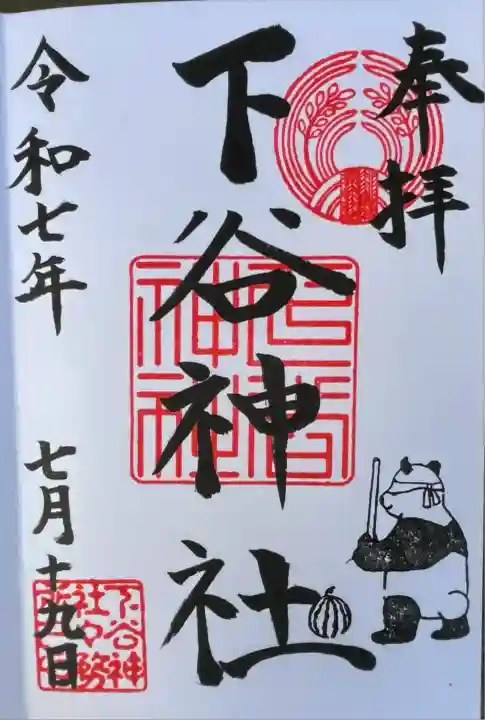 奉拝
下谷神社
令和七年 七月十九日
下谷神
社